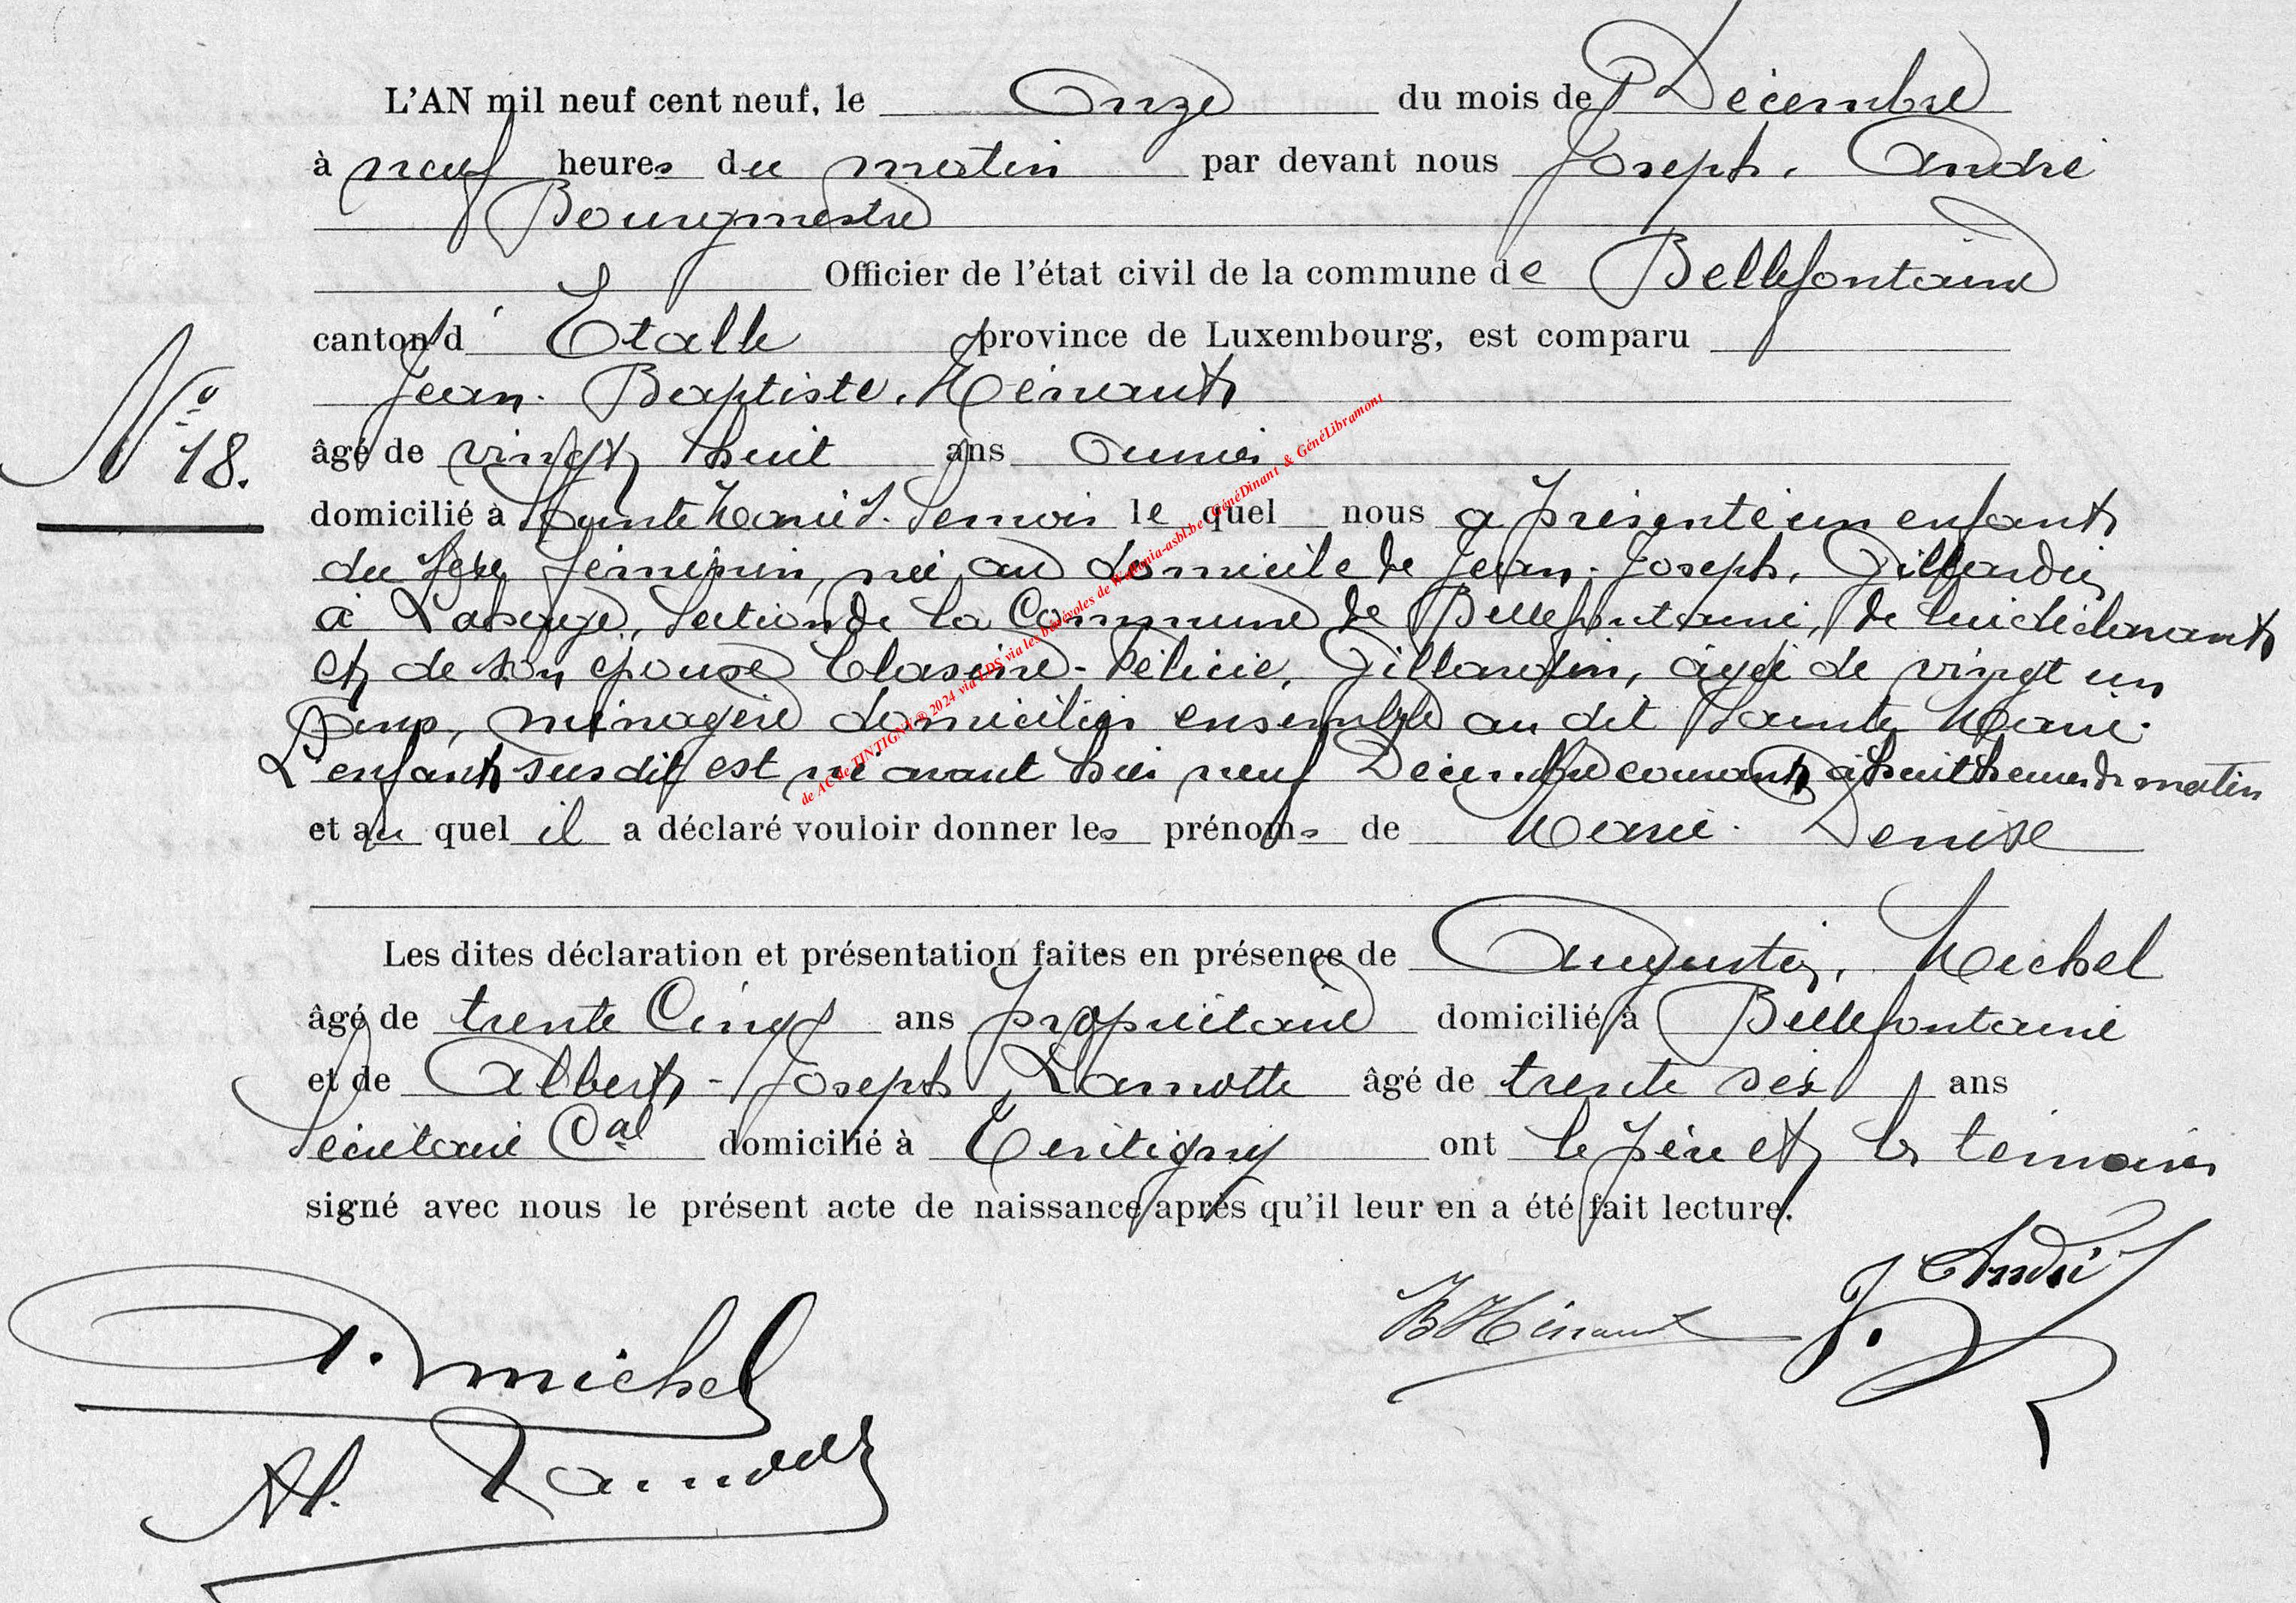 L'AN mil neuf cent neuf, le Onze du mois de Décembre
à neuf heures du matin par devant nous Joseph. André
Bourgmestre
Officier de l'état civil de la commune de Bellefontaine
canton d'Etalle province de Luxembourg, est comparu
Jean-Baptiste. Hénault
N° 18.
âgé de vingt huit ans
domicilié à Sainte Marie S. Semois le quel nous a présenté un enfant
du sexe féminin, né au domicile de Jean-Joseph. Gillardin
à Lahage, Section de la Commune de Bellefontaine, de lui déclarant
et de son épouse Félicie, Gillardin, âgée de vingt un
ans, ménagère domiciliés ensemble au dit Sainte Marie.
L'enfant susdit est né avant hier neuf Décembre courant à huit heures du matin
et au quel il a déclaré vouloir donner les prénoms de Marie-Denise
Les dites déclaration et présentation faites en présence de Augustin, Michel
âgé de trente Cinq ans propriétaire domicilié à Bellefontaine
et de Albert-Joseph Lamotte âgé de trente six ans
Secrétaire Cal domicilié à Tintigny ont le père et les témoins
signé avec nous le présent acte de naissance après qu'il leur en a été fait lecture.
J. André
A. Michel
Al. Lamotte
de AC de TINTIGNY © 2024 via LDS via les bénévoles de Wallonia-asbl.be GénéDinant & GénéLibramont